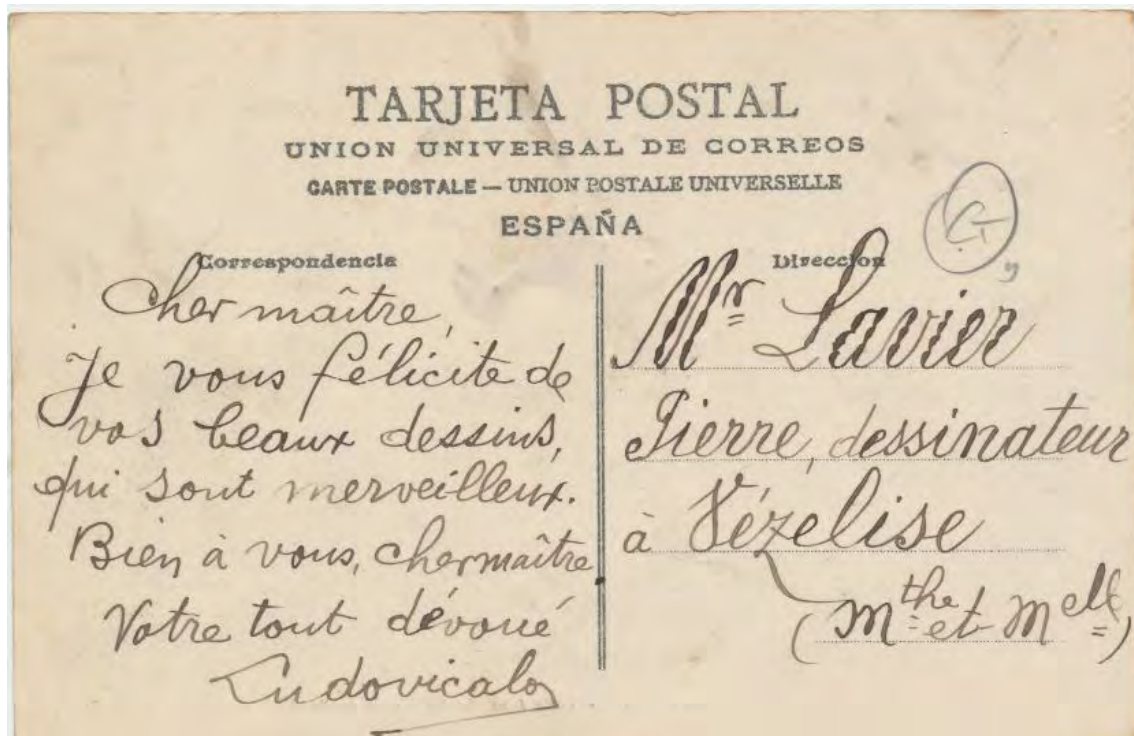 TARJETA POSTAL
UNION UNIVERSAL DE CORREOS
CARTE POSTALE — UNION POSTALE UNIVERSELLE
ESPAÑA
Correspondencia
Cher maître,
Je vous félicite de
vos beaux dessins,
qui sont merveilleux.
Bien à vous, cher maître
Votre tout dévoué
Ludovicalo
Direccion
Mr Lavier
Pierre, dessinateur
à Vézelise
(Mthe et Melle)